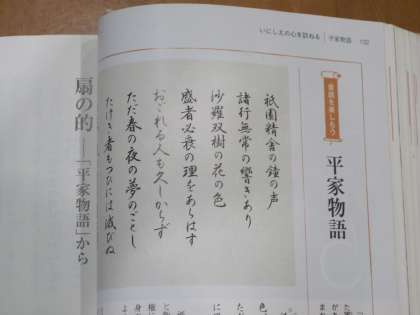 いにしえの心を訪ねる 平家物語 132
音読を楽しもう
平家物語
祇園精舎の鐘の声
諸行無常の響きあり
沙羅双樹の花の色
盛者必衰の理をあらはす
おごれる人も久しからず
ただ春の夜の夢のごとし
たけき者もつひには滅びぬ
扇の的――「平家物語」から